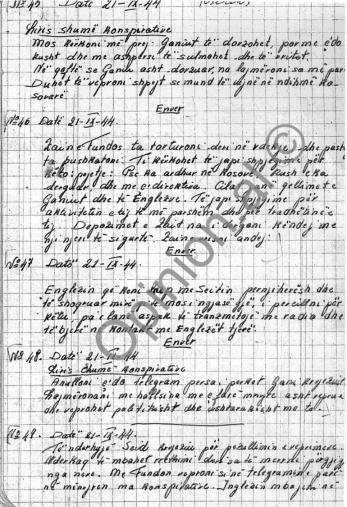 Nº 45 Datë 21-IX-44
Tiris shumë konspirative
Mos kërkoni më prej Ganiut të dorzohet, por me çdo
kusht dhe me ashpërsi të sulmohet dhe të vritet.
Në qoftë se Ganiu asht dorzuar, na lajmëroni sa më parë
Duhet të veproni shpejt se mund të vijnë në ndihmë ko-
sovarë
Enver
Nº 46 Datë 21-IX-44.
Zain e Fundos ta torturoni deri në vdekje dhe pastaj
ta pushkatoni. Ti kërkohet të japi shpjegime për
këto pyetje: Pse ka ardhur në Kosovë. Kush e ka
dërguar dhe me ç'direktiva. Cilat janë qellimet e
Ganiut dhe të Englezve. Të japi shpjegime për
aktivitetin e tij të parshëm dhe për tradhëtinë e
tij. Depozimet e Zait na i dërgoni këndej me
nji njeri të sigurtë. Zain vrisni andej
Enver
Nº 47 Datë 21-IX-44
Englezin që keni kap me Seitin përnjiherësh dhe
të shoqruar mirë që të mos i ngjasë gjë, i përcillni për
këtu, pa lanë aspak të transmetojë me radio dhe
të bjerë në kontakt me Englezët tjerë.
Enver
Nº 48. Datë 21-IX-44
Tiris shumë konspirative
Anulloni çdo telegram përsa i përket Gani Kryeziut.
Lajmëronani me hollsina me ç'farë mnyre asht vepruar
dhe veprohet politikisht dhe ushtarakisht me ta.
Nº 49. Datë 21-IX-44.
Të ndërhyjë Seidi Kryeziu për pezullimin e veprimeve
nga
Me Fundon veproni si në telegramin e parë
në mënyrën ma konspirative. Inglezin mbajeni në
Opinion.al